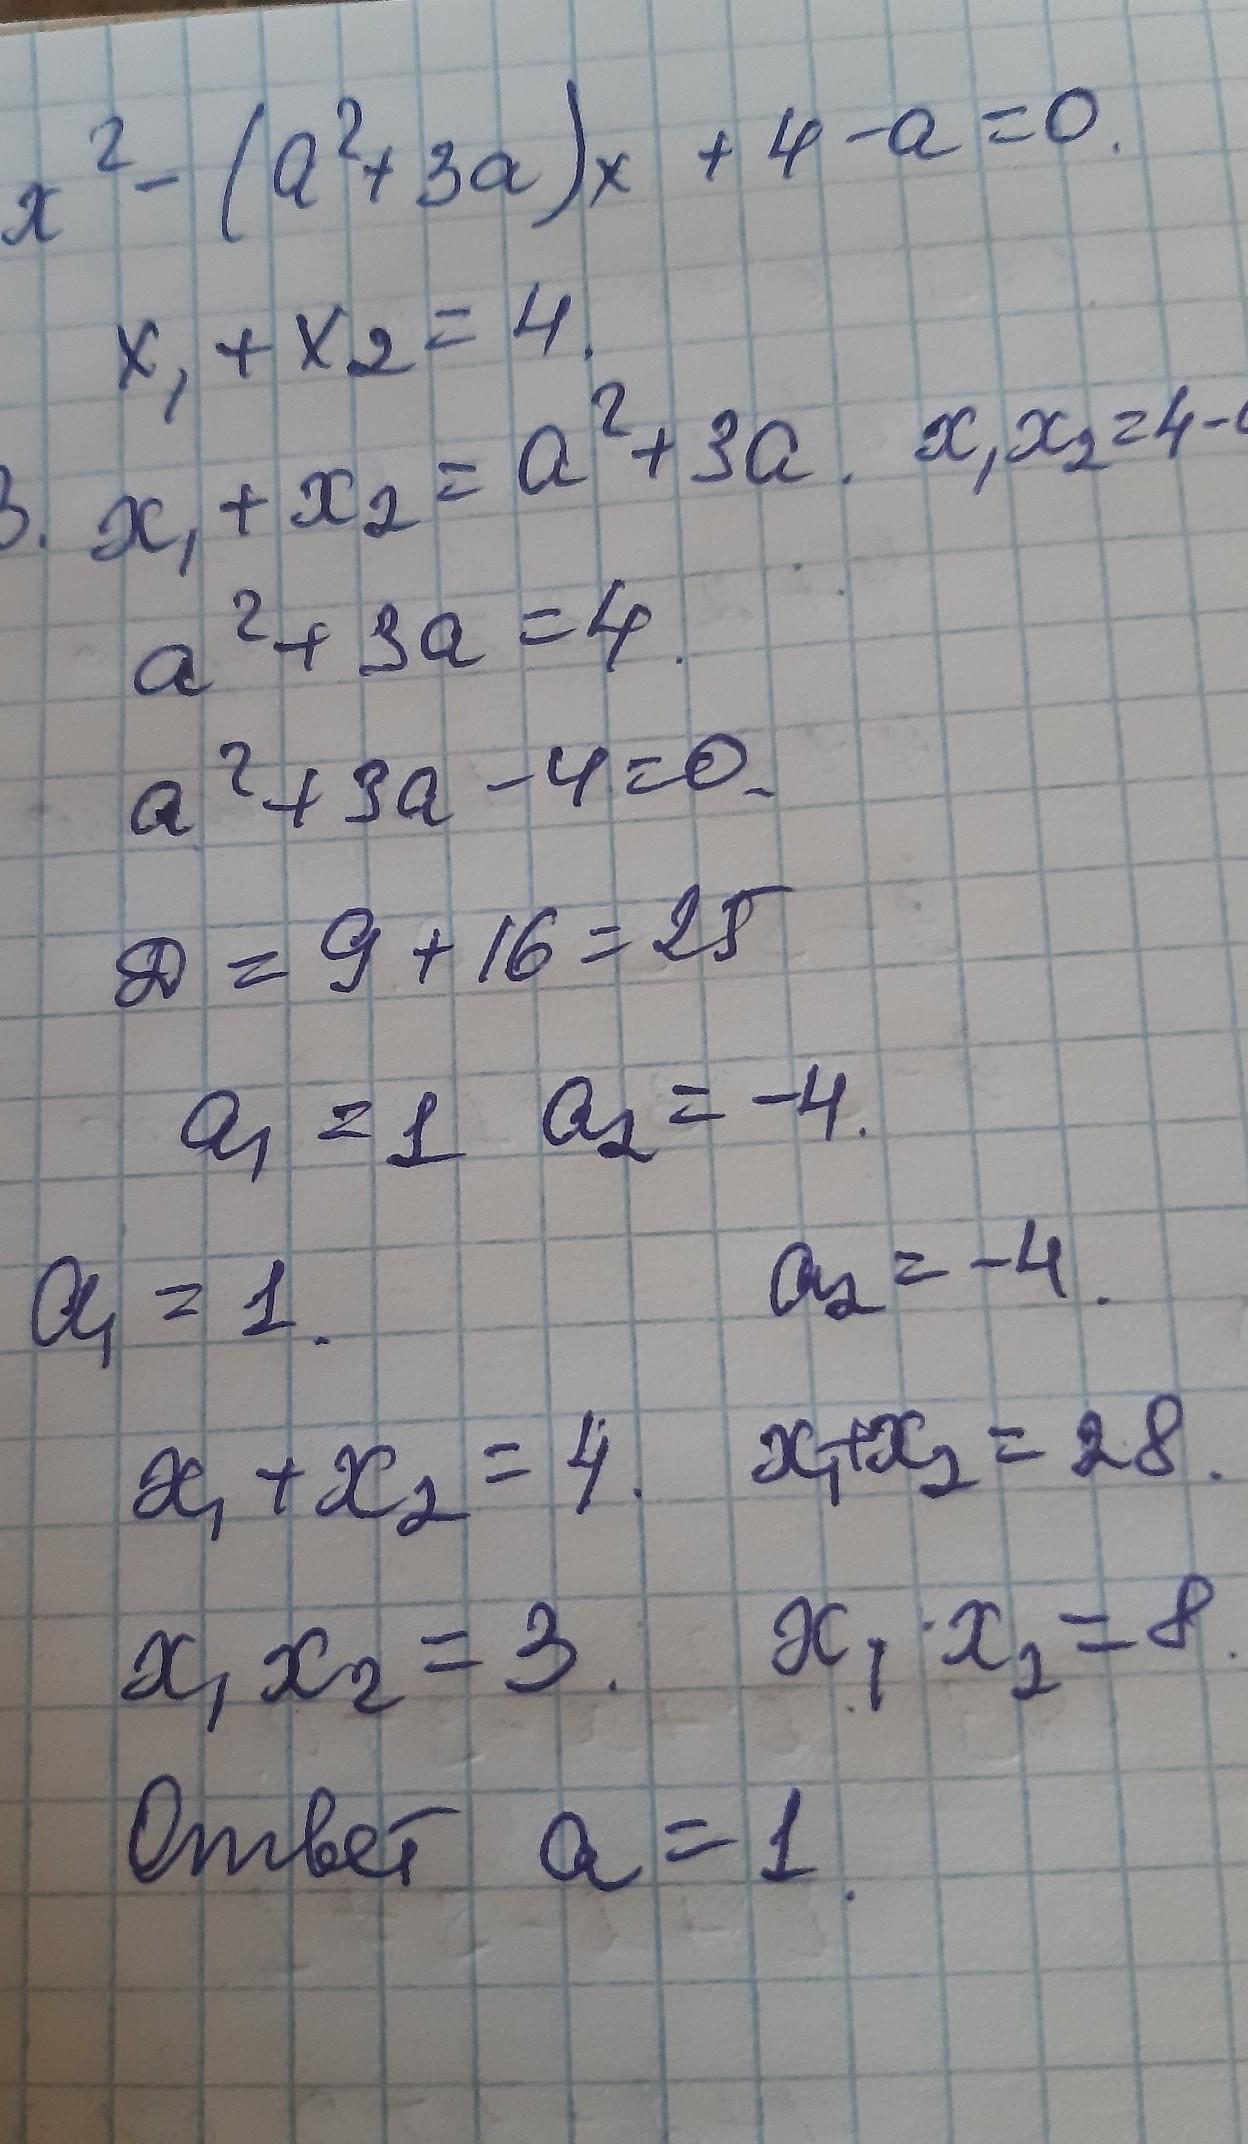 x² - (a² + 3a)x + 4 - a = 0.
x₁ + x₂ = 4.
В. x₁ + x₂ = a² + 3a. x₁x₂ = 4 -
a² + 3a = 4.
a² + 3a - 4 = 0.
D = 9 + 16 = 25
a₁ = 1 a₂ = -4.
a₁ = 1. a₂ = -4.
x₁ + x₂ = 4. x₁ + x₂ = 28.
x₁ x₂ = 3. x₁ · x₂ = 8.
Ответ a = 1.